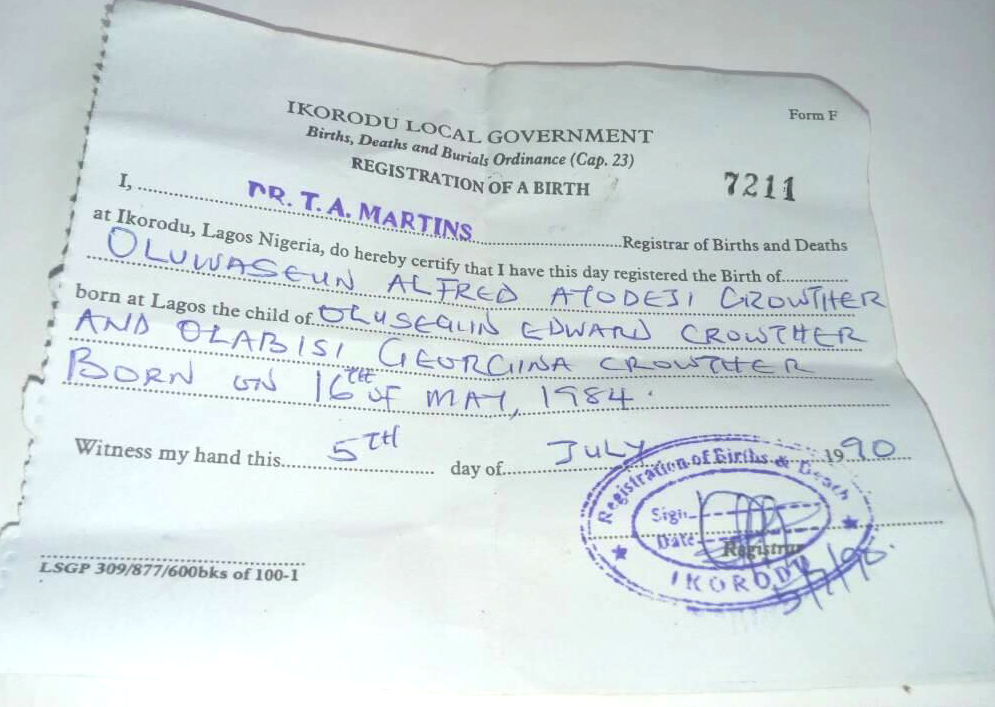 Form F
IKORODU LOCAL GOVERNMENT
Births, Deaths and Burials Ordinance (Cap. 23)
REGISTRATION OF A BIRTH
7211
I, DR. T. A. MARTINS Registrar of Births and Deaths
at Ikorodu, Lagos Nigeria, do hereby certify that I have this day registered the Birth of
OLUWASEUN ALFRED AYODEJI CROWTHER
born at Lagos the child of OLUSEGUN EDWARD CROWTHER
AND OLABISI GEORGINA CROWTHER
BORN ON 16TH OF MAY, 1984.
Witness my hand this 5TH day of JULY 1990
Registration of Births & Death
Sign
Date
Registrar
IKORODU
5/7/90.
LSGP 309/877/600bks of 100-1